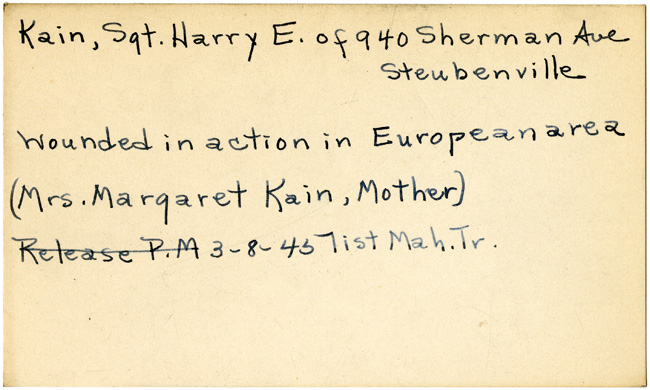 Kain, Sgt. Harry E. of 940 Sherman Ave
Steubenville
Wounded in action in European area
(Mrs. Margaret Kain, Mother)
Release P.M 3-8-45 list Mah. Tr.